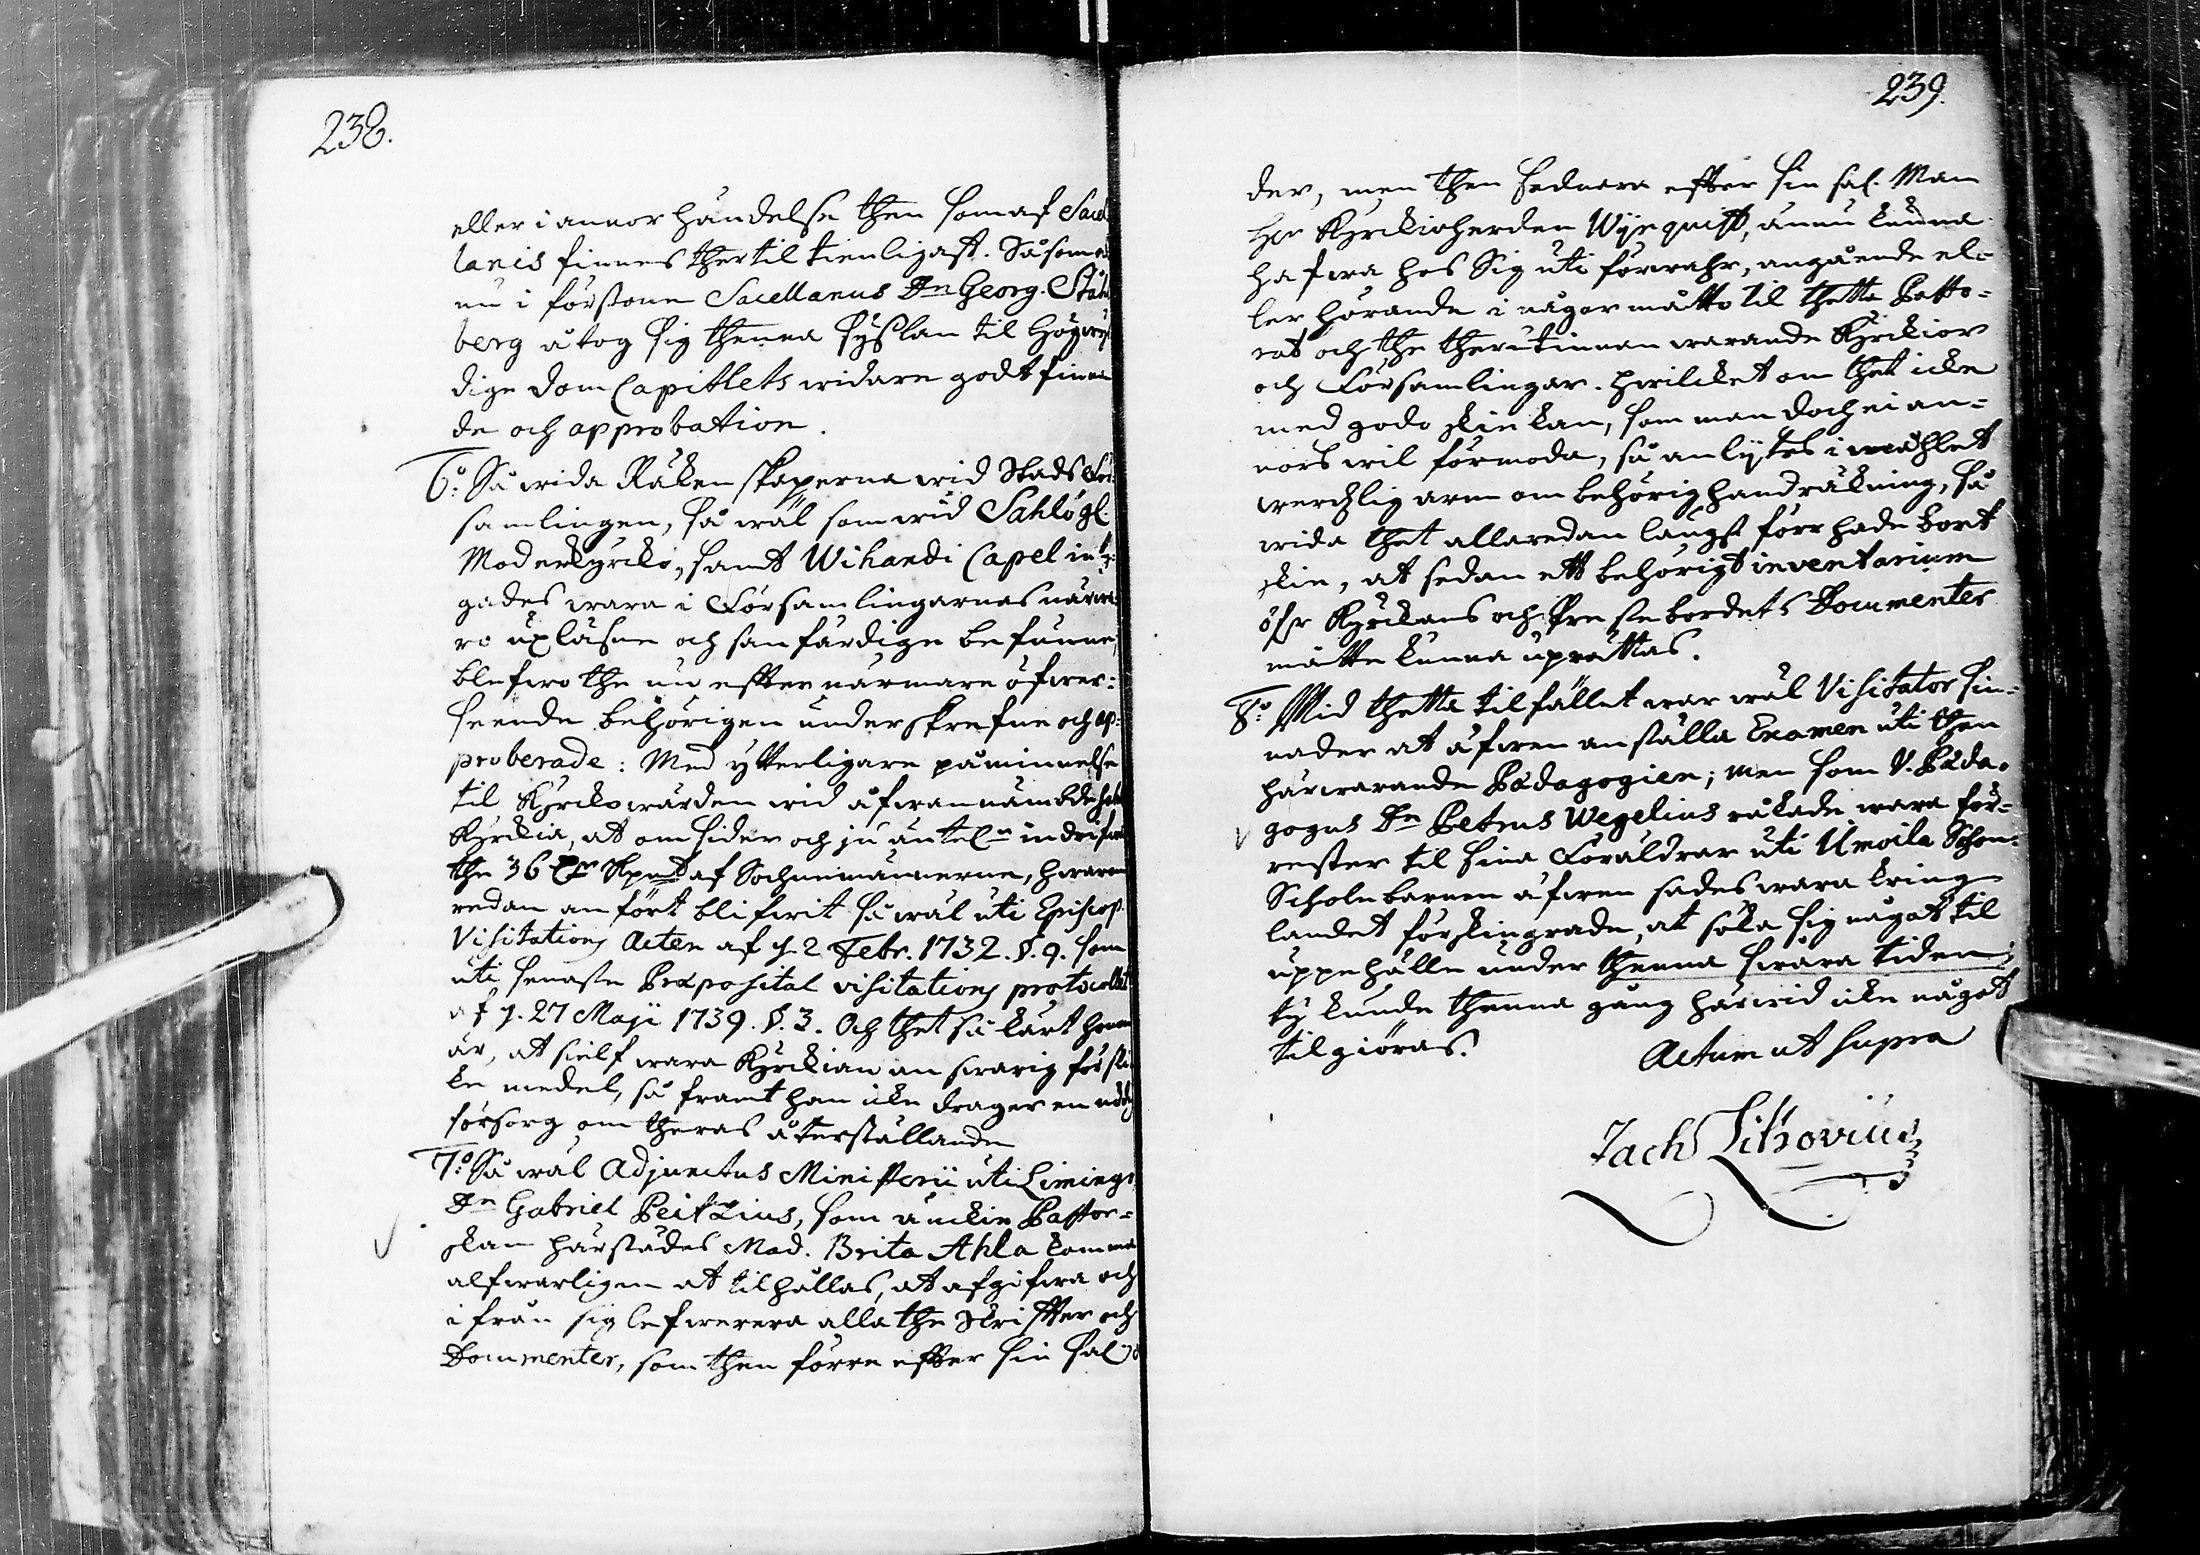 238.
eller i annor händelse then som af Sacel
lanis finnes ther til tienligast. Såsom ock
nu i förstone Sacellanus Dn Georg. Stähl
berg åtog sig thenna syslan til Högwyr
dige Dom Capitlets widare godtfinnan
de och approbation.
6:o Så wida Räkenskaperna wid Stads För
samlingen, så wäl som wid Sahlo
Moderkyrko, samt Wihandi Capel
gades wara i Församlingarnas närwa
ro upläsne och sanfärdige befunne,
blefwo the nu efter närmare öfwer=
seende behörigen underskrefne och ap=
proberade: Med ytterligare påminnelse
til Kyrkowärden wid åfwannämbde
Kyrkia, at om sider och ju
the 36 af Sochnemännerne, hwarom
redan anfört blifwit så wäl uti Episcop.
Visitations Acten af d. 2 Febr. 1732. §. 9. som
uti senaste Præposital visitations protocollet
af d. 27 Maji 1739. §. 3. Och thet så kärt honom
är, at sielf wara Kyrkian answarig för sli
ke medel, så framt han icke drager en nödig
försorg om theras återställande
7:o Så wäl Adjunctus Ministerii uti Limingo
Dn Gabriel Peitzius, som änkie Pastor=
skan härstädes Mad. Brita Ahla komma
alfwarligen at tilhållas, at afgifwa och
ifrån sig lefwerera alla the skrifter och
Documenter, som then förre efter sin sal.
239.
der, men then sednare efter sin sal. Man
Hr Kyrkioherden Wijnquist, ännu kunna
hafwa hos sig uti förwahr, angående el=
ler hörande i någor måtto til thetta Pasto=
rat och the therutinnan warande Kyrkior
och Församlingar. Hwilcket om thet icke
med godo skie kan, som man doch ei an=
nors wil förmoda, så anlytes i wärdslet
werdslig arm om behörig handräkning, så
wida thet allaredan längst förr hade bort
skie, at sedan ett behörigt inventarium
öfr Kyrkans och Prestebordets Documenter
måtte kunna uprättas.
8:o Wid thetta tilfället war wäl Visitator sin=
nader at äfwen anställa Examen uti then
härwarande Pædagogien; men som V. Pæda=
gogus Dn Petrus Wegelius råkade wara för=
rester til sina Föräldrar uti Umoila Sohn:
Scholæbarnen äfwen sades wara kring
landet förskingrade, at söka sig något til
uppehälle under thenna swåra tiden;
ty kunde thenna gång härwid icke något
tilgiöras.
Actum ut supra
Zach Lithovius